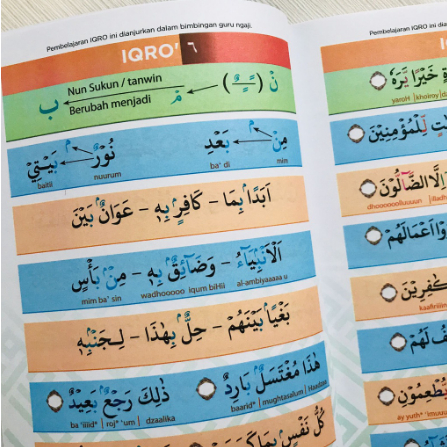 Pembelajaran IQRO ini dianjurkan dalam bimbingan guru ngaji.
IQRO' ٦
Nun Sukun / tanwin
Berubah menjadi
نْ (ـًـٍـٌ) ← مْ ← ب
مِنْ بَعْدِ نُوْرٌ بَيْتِيْ
min ba' di nuurum baitii
اَبَدًا بِمَا - كَافِرٍ بِهٖ - عَوَانٌ بَيْنَ
اَلْاَنْبِيَاءُ - وَضَائِقٌ بِهٖ - مِنْ بَأْسٍ
al-ambiyaaaaa u wadhooooo iqum biHii mim ba' sin
بَغْيًا بَيْنَهُمْ - حِلٌّ بِهٰذَا - لِجَنْبِهٖ
هٰذَا مُغْتَسَلٌ بَارِدٌ
Haadzaa | mughtasalum | baarid*
ذٰلِكَ رَجْعٌ بَعِيْدٌ
dzaalika | roj* 'um | ba 'iiiid*
كُلُّ نَفْسٍ بِمَا كَسَبَتْ
Pembelajaran IQRO ini dia
خَيْرًا يَرَهٗ
yaroH | khoiroy
لِّلْمُؤْمِنِيْنَ
وَلَا الضَّآلِّيْنَ
اَعْمَالَهُمْ